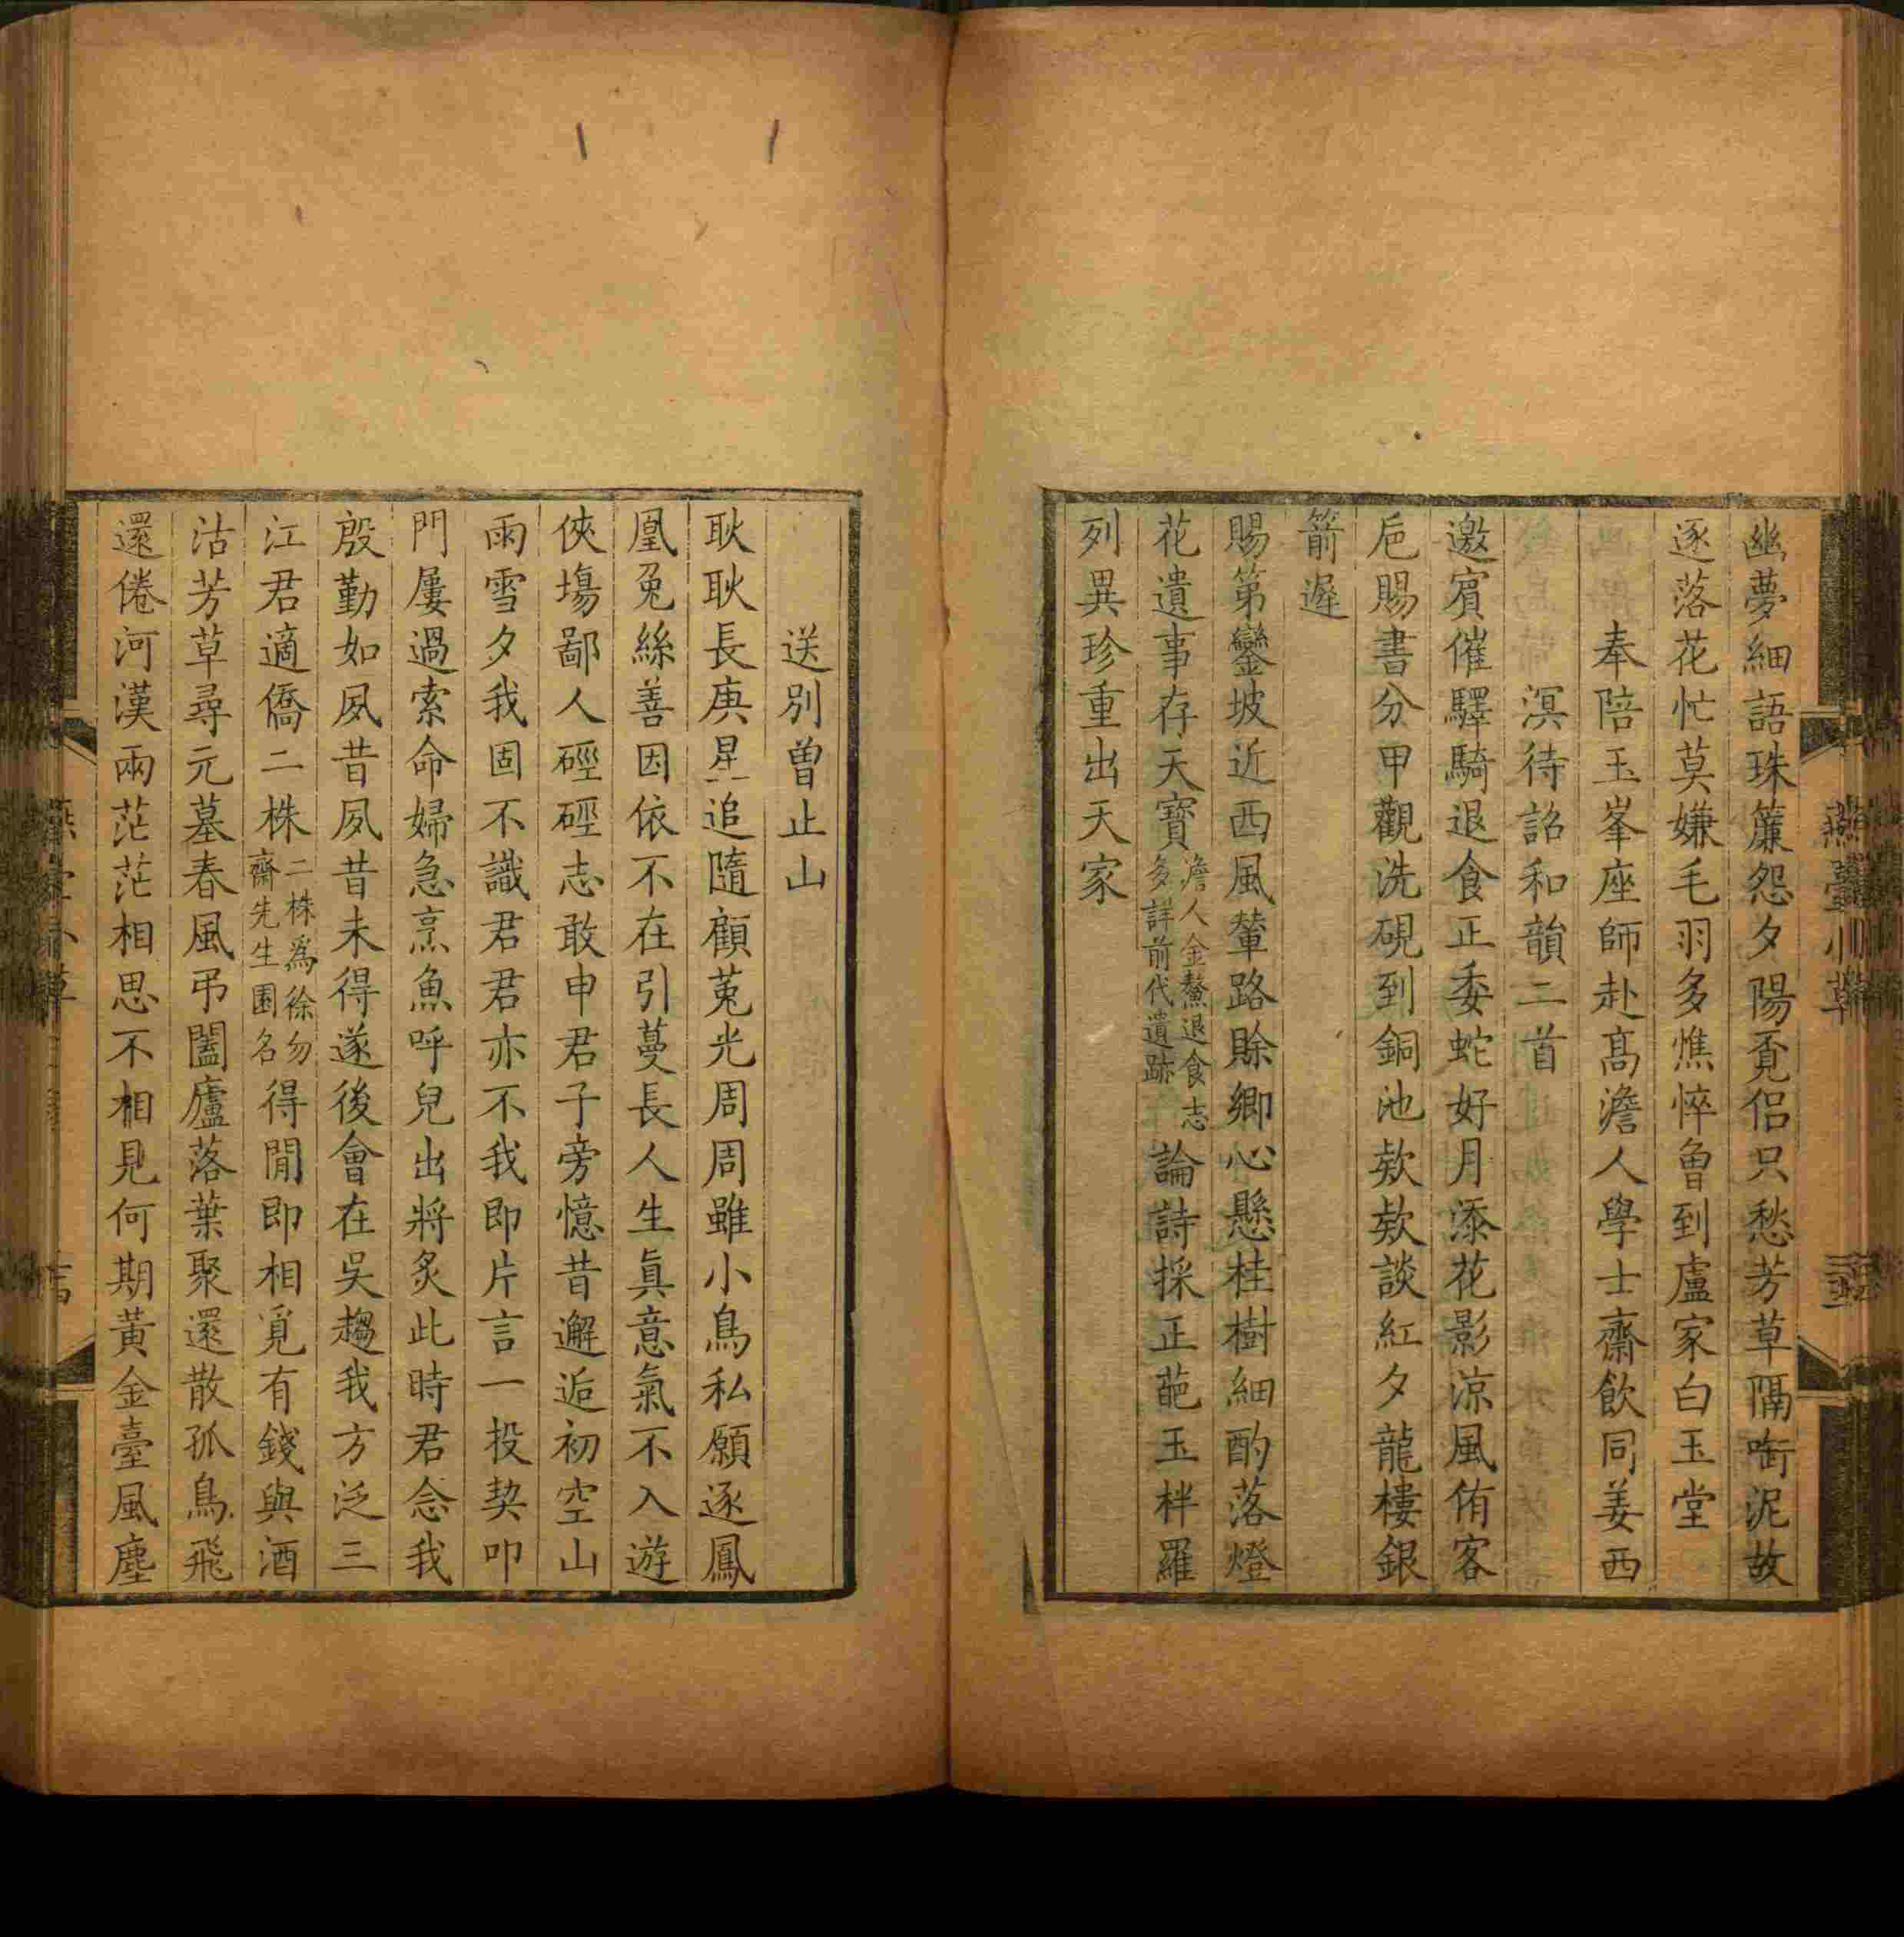 幽夢細語珠簾怨夕陽覔侶只愁芳草隔啣泥故
逐落花忙莫嫌毛羽多憔悴曾到盧家白玉堂
奉陪玉峯座師赴髙澹人學士齋飲同姜西
溟待詔和韻二首
邀賔催驛騎退食正委蛇好月添花影涼風侑客
巵賜書分甲觀洗硯到銅池欵欵談紅夕龍樓銀
箭遲
賜第鑾坡近西風輦路賖鄉心懸桂樹細酌落燈
花遺事存天寶澹人金鰲退食志多詳前代遺跡論詩採正葩玉柈羅
列異珍重出天家
燕臺小草
送别曾止山
耿耿長庚星追隨顧菟光周周雖小鳥私願逐鳳
凰兎絲善因依不在引蔓長人生眞意氣不入遊
俠塲鄙人硜硜志敢申君子旁憶昔邂逅初空山
雨雪夕我固不識君君亦不我即片言一投契叩
門屢過索命婦急烹魚呼兒出將炙此時君念我
殷勤如夙昔夙昔未得遂後會在吳趨我方泛三
江君適僑二株二株爲徐勿齋先生園名得閒即相覓有錢與酒
沽芳草尋元墓春風弔闔廬落葉聚還散孤鳥飛
還倦河漢兩茫茫相思不相見何期黃金臺風塵